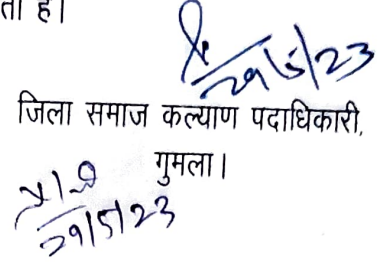 ता है।
29/5/23
जिला समाज कल्याण पदाधिकारी,
गुमला।
29/5/23